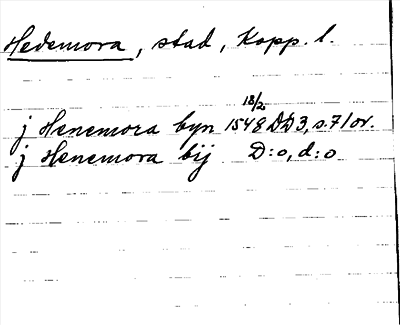 Hedemora, stad, Kopp. l.
18/2
j Henemora byn 1548 DD3, s. 7/or.
j Henemora bij D:o, d:o